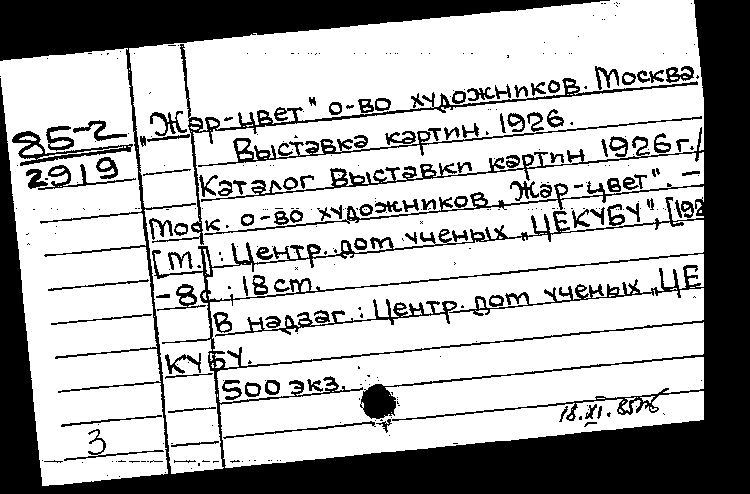 85-2
2919
„Жар-цвет" о-во художников. Москва.
Выставка картин. 1926.
Каталог выставки картин 1926 г./
Моск. о-во художников „Жар-цвет". —
[М.]: Центр. дом ученых „ЦЕКУБУ", [192
-8с.; 18 см.
В надзаг.: Центр. дом ученых „ЦЕ
КУБУ.
500 экз.
18.XI.85
3